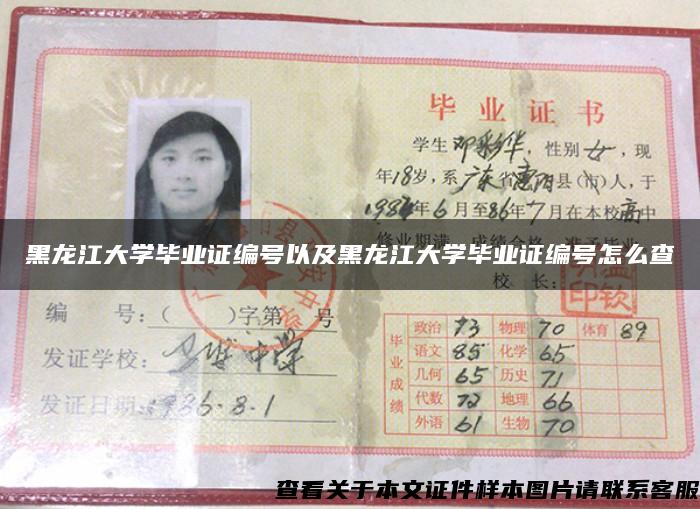 毕业证书
学生邓彩华，性别女，现
年18岁，系广东省惠阳县(市)人，于
1984年6月至86年7月在本校高中
修业期满，成绩合格，准予毕业
黑龙江大学毕业证编号以及黑龙江大学毕业证编号怎么查
校 长：
编 号：( )字第 号
发证学校： 中学
发证日期：1986.8.1
毕业成绩
政治 73 物理 70 体育 89
语文 85 化学 65
几何 65 历史 71
代数 72 地理 66
外语 61 生物 70
查看关于本文证件样本图片请联系客服